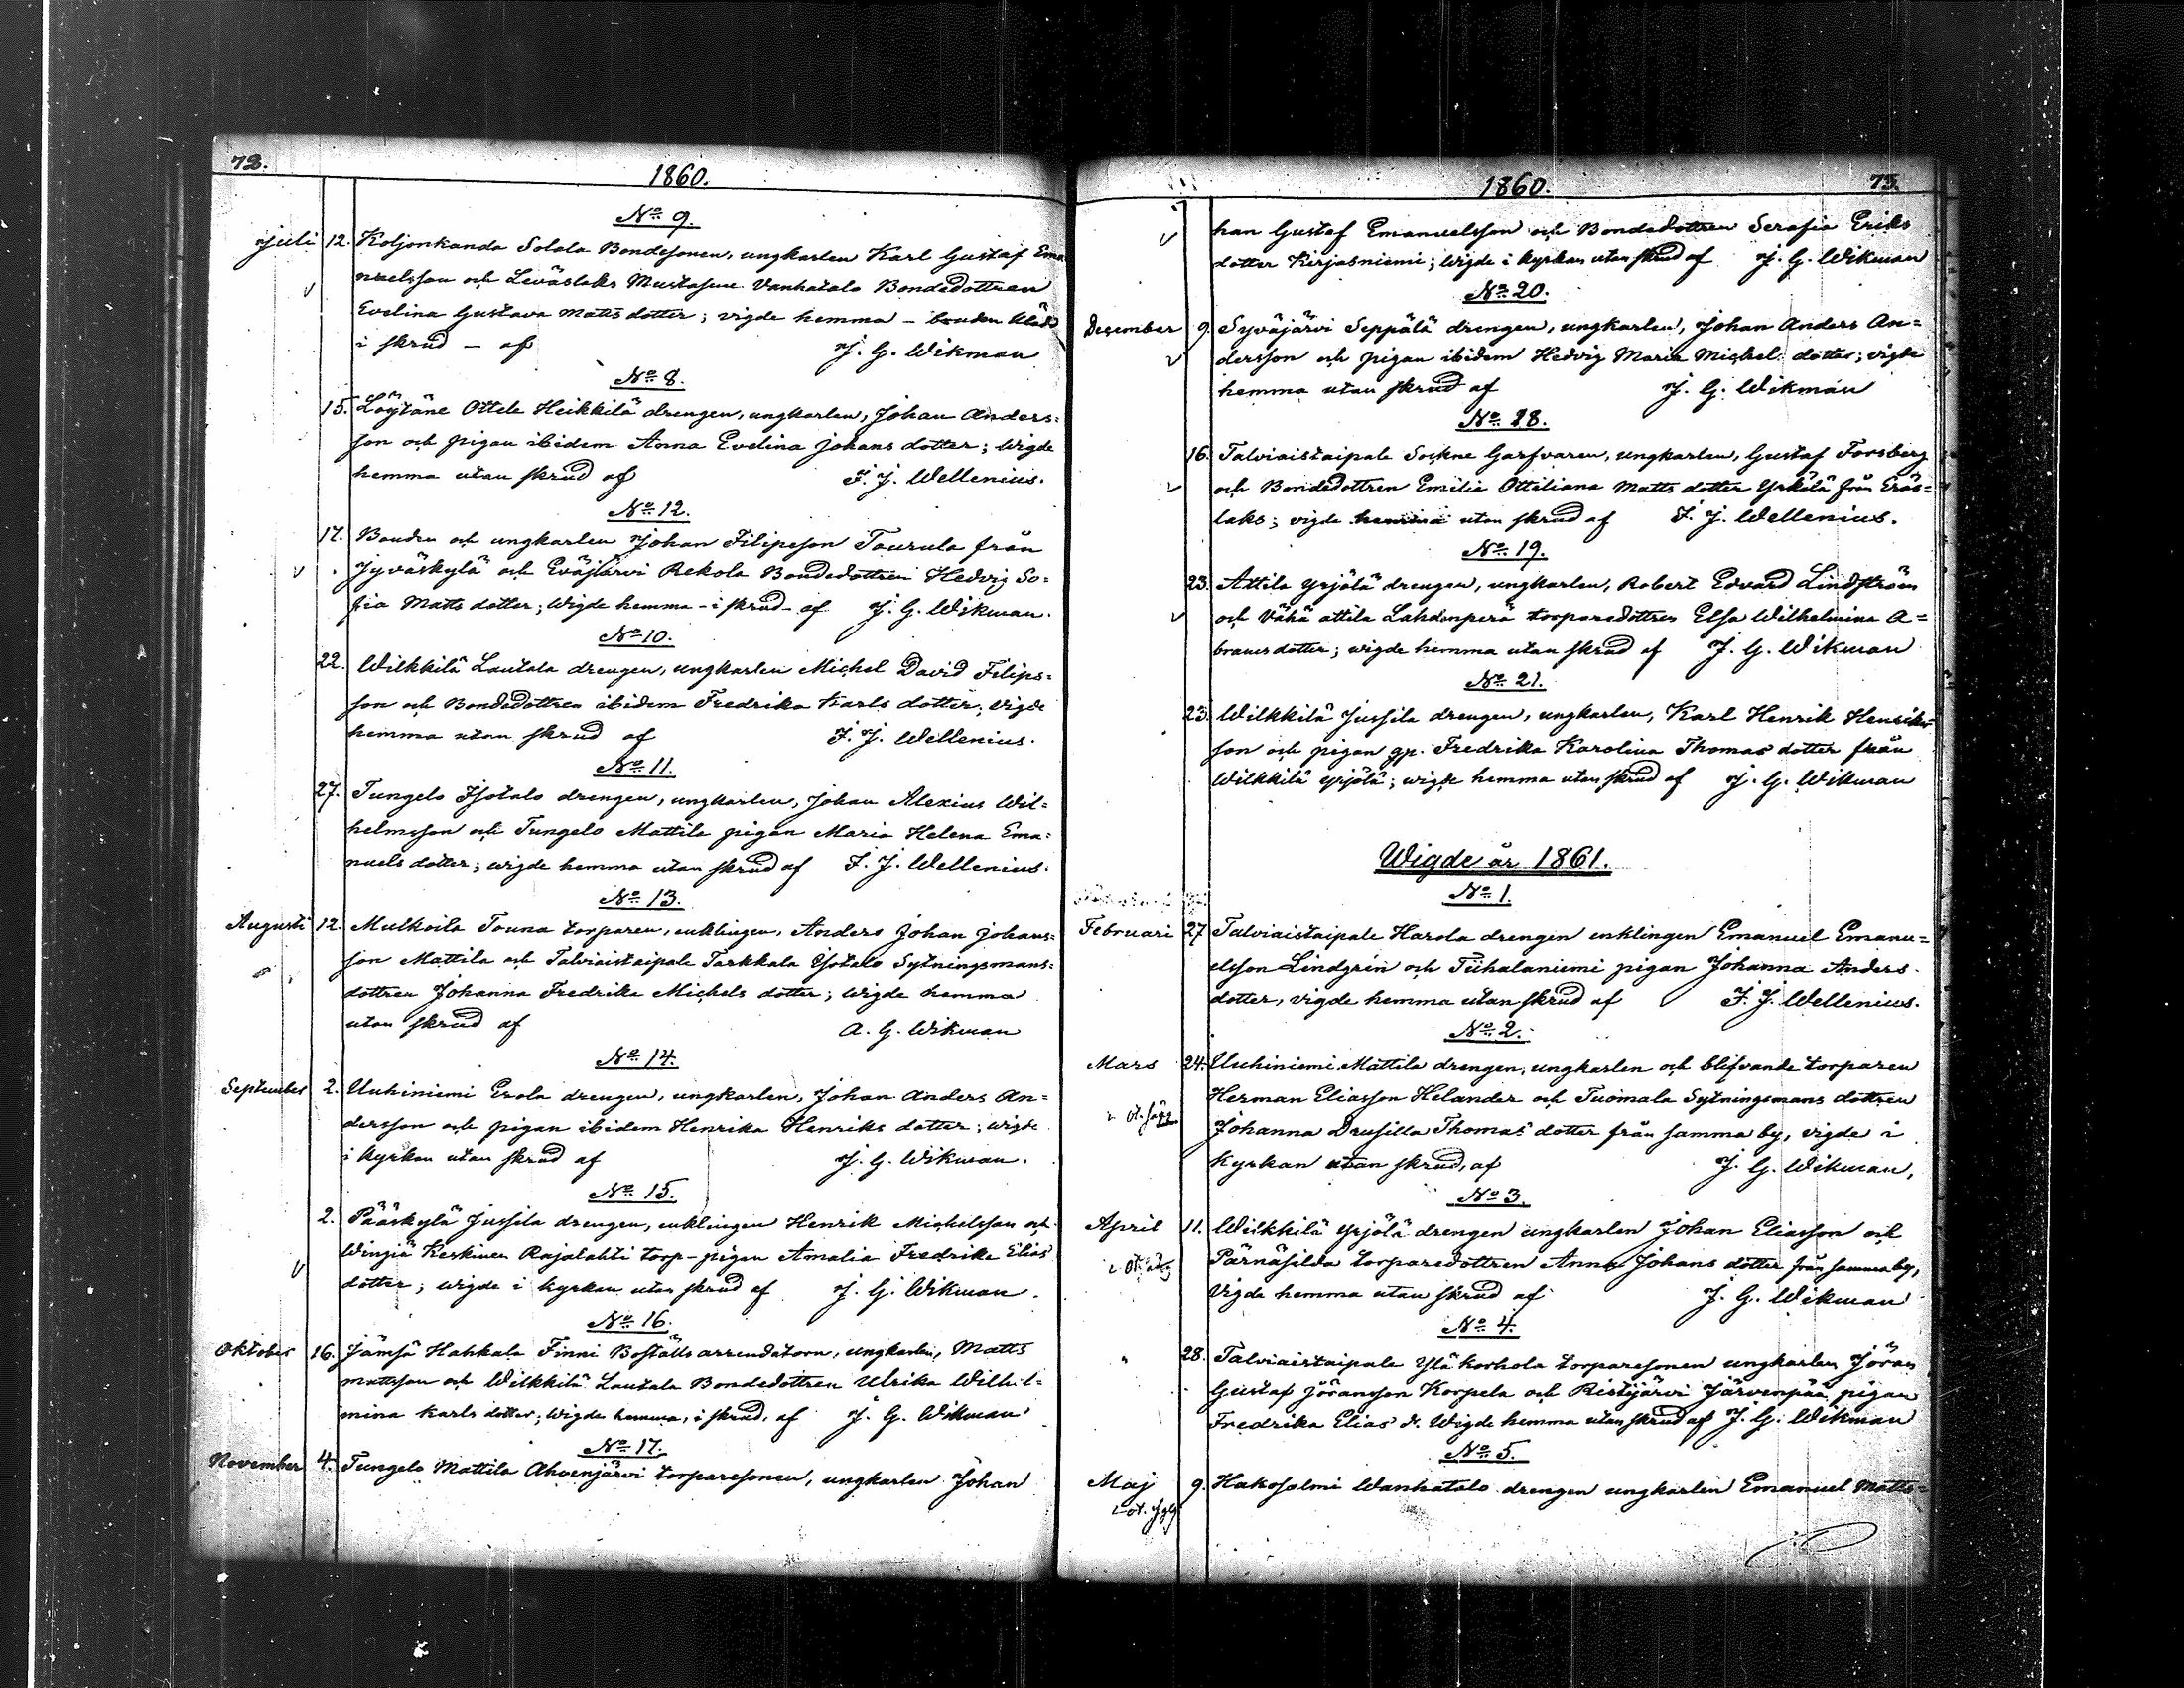 72.
1860.
No 9.
Juli 12. Koljonkanda Solala Bondesonen, ungkarlen Karl Gustaf Ema
nuelsson och Leväslaks Mustasuu Vanhatalo Bondedottren
Evelina Gustava Matts dotter; vigde hemma – bruden klädd
i skrud – af J. G. Wikman
No 8.
15. Löytäne Ottela Heikkilä drengen, ungkarlen, Johan Anders=
son och pigan ibidem Anna Evelina Johans dotter; wigde
hemma utan skrud af F. J. Wellenius.
No 12.
17. Bonden och ungkarlen Johan Filipsson Taurula från
Jyväskylä och Eväjärvi Rekola Bondedottren Hedvig So=
fia Matts dotter; Wigde hemma – i skrud – af J. G. Wikman.
No 10.
22. Wilkkilä Lautala drengen, ungkarlen Michel David Filips=
son och Bondedottren ibidem Fredrika Karls dotter; Vigde
hemma utan skrud af F. J. Wellenius.
No 11.
27. Tungelo Isotalo drengen, ungkarlen, Johan Alexius Wil=
helmsson och Tungelo Mattila pigan Maria Helena Ema=
nuels dotter; wigde hemma utan skrud af F. J. Wellenius.
No 13.
Augusti 12. Mulkoila Touna torparen, enklingen, Anders Johan Johans=
son Mattila och Talviaistaipale Tarkkala Isotalo Sytningsmans=
dottren Johanna Fredrika Michels dotter; wigde hemma
utan skrud af A. G. Wikman
No 14.
September 2. Uuhiniemi Erola drengen, ungkarlen, Johan Anders An=
dersson och pigan ibidem Henrika Henriks dotter; wigde
i kyrkan utan skrud af J. G. Wikman.
No 15.
2. Pääskylä Jussila drengen, enklingen Henrik Michelsson och
Winziä Keskinen Rajalahti torp-pigan Amalia Fredrika Elias
dotter; wigde i kyrkan utan skrud af J. G. Wikman.
No 16.
Oktober 16. Jämsä Hahkala Finni Boställs arrendatorn, ungkarlen, Matts
Mattsson och Wilkkilä Lautala Bondedottren Ulrika Wilhel=
mina Karls dotter; Wigde hemma, i skrud, af J. G. Wikman
No 17.
November 4. Tungelo Mattila Ahvenjärvi torparesonen, ungkarlen Johan
1860. 73.
han Gustaf Emanuelsson och Bondedottren Serafia Eriks
dotter Kirjasniemi; Wigde i kyrkan utan skrud af J. G. Wikman
No 20.
Desember 9. Syväjärvi Seppälä drengen, ungkarlen, Johan Anders An=
dersson och pigan ibidem Hedvig Maria Michels dotter; vigde
hemma utan skrud af J. G. Wikman
No 18.
16. Talviaistaipale Sockne Garfvaren, ungkarlen, Gustaf Forsberg
och Bondedottren Emilia Ottiliana Matts dotter Yrkölä från Eräs=
laks; vigde hemma utan skrud af F. J. Wellenius.
No 19.
23. Attila Yrjölä drengen, ungkarlen, Robert Edvard Lindström
och Vähä attila Lahdenperä torparedottren Elsa Wilhelmina A=
brams dotter; wigde hemma utan skrud af J. G. Wikman
No 21.
23. Wilkkilä Jussila drengen, ungkarlen, Karl Henrik Henriks=
son och pigan gp. Fredrika Karolina Thomas dotter från
Wilkkilä Yrjölä; wigde hemma utan skrud af J. G. Wikman
Wigde år 1861.
No 1.
Februari 27 Talviaistaipale Harola drengen enklingen Emanuel Emanu=
elsson Lindgrén och Tiihalaniemi pigan Johanna Anders
dotter, vigde hemma utan skrud af F. J. Wellenius.
No 2.
Mars 24. Uuhiniemi Mattila drengen, ungkarlen och blifvande torparen
Herman Eliasson Helander och Tuomala Sytningsmans dottren
Johanna Drusilla Thomas dotter från samma by, vigde i
kyrkan utan skrud, af J. G. Wikman,
No 3.
April 11. Wilkkilä Yrjölä drengen ungkarlen Johan Eliasson och
Pärnäsilda torparedottren Anna Johans dotter från samma by,
Vigde hemma utan skrud af J. G. Wikman
No 4.
" 28. Talviaistaipale Ylä korhola torparesonen ungkarlen Jöran
Gustaf Jöransson Korpela och Ristijärvi Järvenpää pigan
Fredrika Elias d. Wigde hemma utan skrud af J. G. Wikman
No 5.
Maj 9. Hakosalmi Wanhatalo drengen ungkarlen Emanuel Matts=